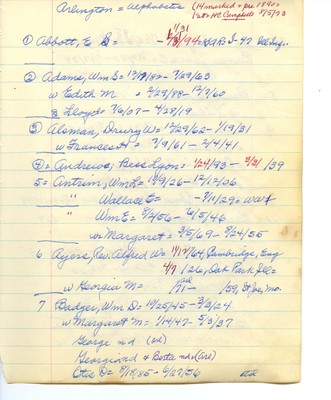 Arlington = Alphabetic (14 marked = pre 1890=
HC Campbell 8/5/73
1/31
① Abbott, E B = - /94 = I-47
② Adams, Wm S = 12/19/82- 7/29/63
w Edith M = 2/29/88-12/7/60
& Lloyd = 7/6/07 - 4/28/19
③ Alsman, Drury W = 12/29/62-1/19/31
w Frances A = 7/9/61 - 2/4/41
④= Andrews, Bess Lyon= 1/24/83 - 3/31 /39
5= Antrim, Wm L= 10/9/26-12/12/06
" Wallace E= -3/11/29= WW I
" Wm E= 8/2/56- 6/5/46
w= Margaret = 3/5/69- 8/24/55
6 Ayers, Rev. Alfred W= 11/12/64, Cambridge, Eng
4/7 /26, Oak Park Ill=
w Georgia M= /71 - /59, St Jo, Mo.
7 Badger, Wm D= 10/25/45-3/3/24
w Margaret M= 1/14/47- 5/3/37
George n d (are)
Georgia n d & Berta n d (are)
Otis D= 8/18/85- 6/27/56